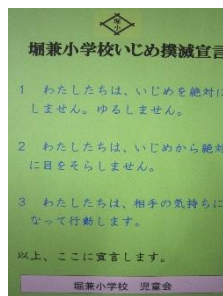 堀小
堀兼小学校いじめ撲滅宣言
1 わたしたちは、いじめを絶対に
しません。ゆるしません。
2 わたしたちは、いじめから絶対
に目をそらしません。
3 わたしたちは、相手の気持ちに
なって行動します。
以上、ここに宣言します。
堀兼小学校 児童会